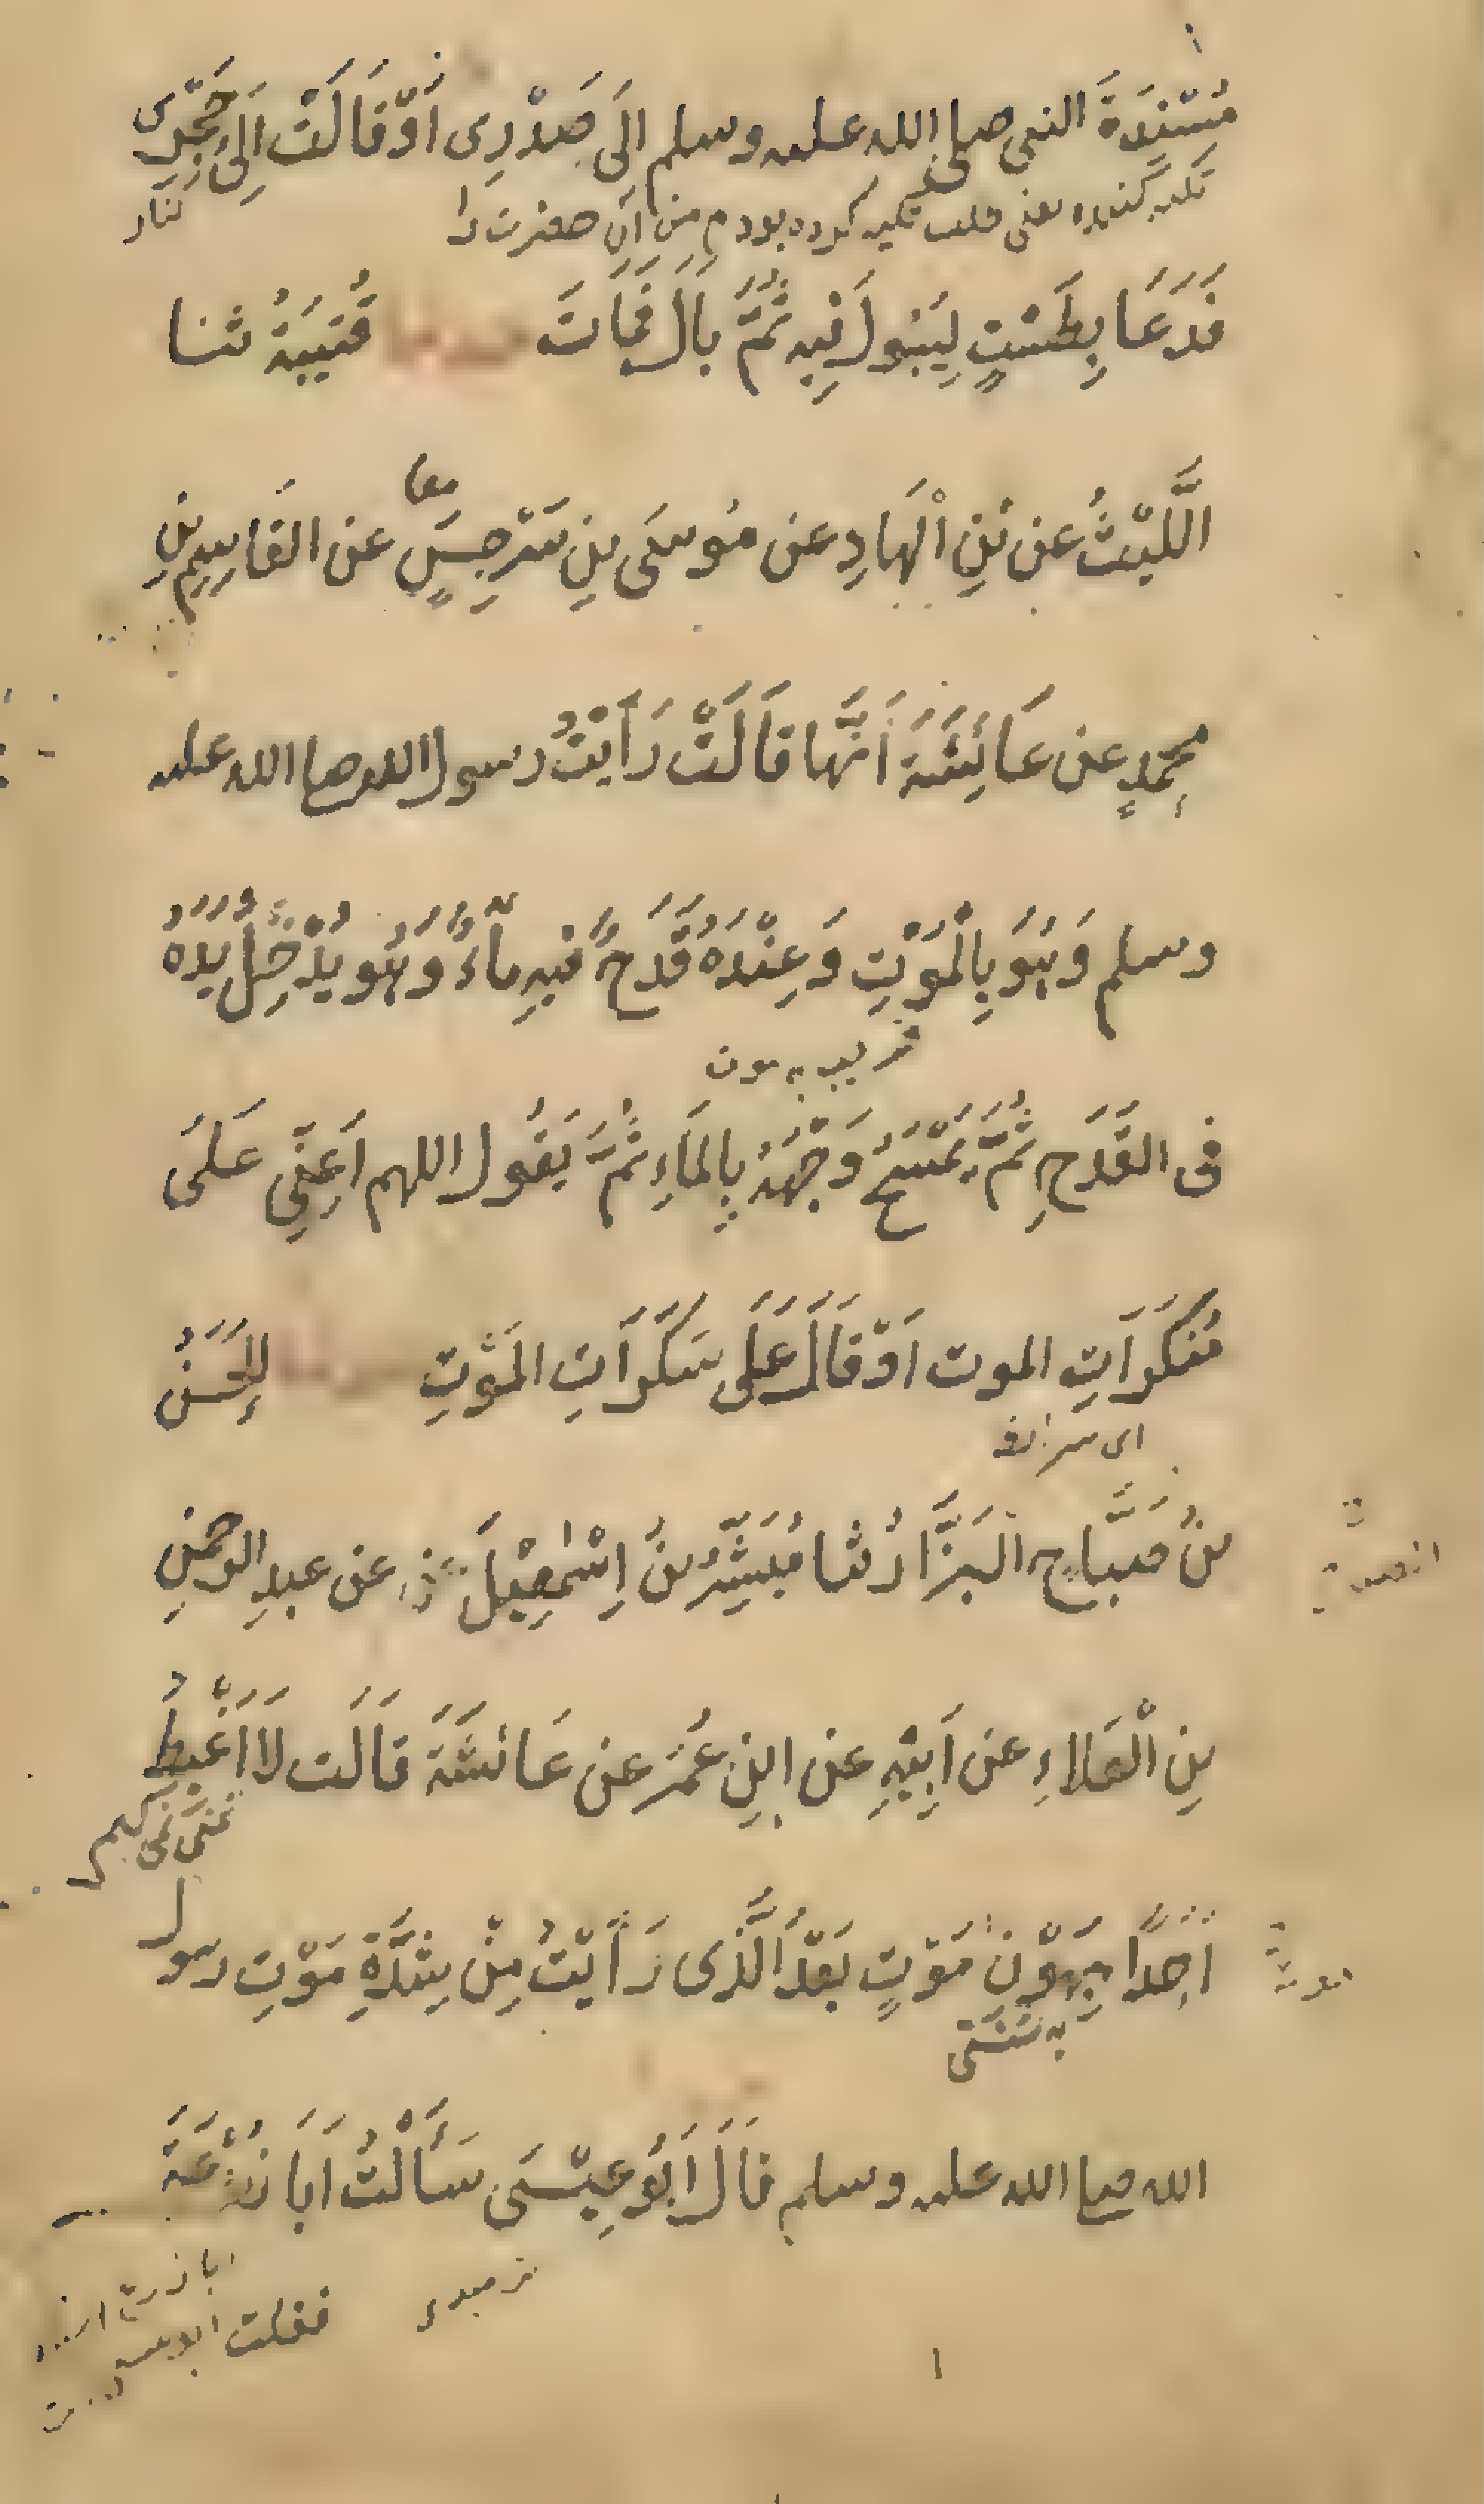 مُسْنِدَةَ النبی صلی الله علیه وسلم اِلَی صَدْرِی اَوْ قَالَتْ اِلَی حَجْرِی
تکیه کننده یعنی تکیه کرده بودم من آن حضرت را
کنار
فَدَعَا بِطَسْتٍ لِیَبُولَ فِیهِ ثُمَّ بَالَ فَمَاتَ قُتَیْبَةُ ثنا
معا
اللَّیْثُ عن بْنِ الْهَادِ عن مُوسَی بنِ سَرْجِسٍ عن القَاسِمِ بنِ
مُحَمَّدٍ عن عَائِشَةَ اَنَّهَا قَالَتْ رَأَیْتُ رسول الله صلی الله علیه
وسلم وَهُوَ بِالْمَوْتِ وَعِنْدَهُ قَدَحٌ فِیهِ مَاءٌ وَهُوَ یُدْخِلُ یَدَهُ
قریب به موت
فی القَدَحِ ثُمَّ یَمْسَحُ وَجْهَهُ بِالمَاءِ ثُمَّ یَقُولُ اللهم اَعِنِّی عَلَی
مُنْکَرَاتِ الموت اَوْ قَالَ عَلَی سَکَرَاتِ المَوْتِ الحَسَنُ
ای
بنُ صَبَّاحِ الْبَزَّارُ ثنا مُبَشِّرُ بنُ اِسْمٰعِیْلَ عن عبدِ الرحمنِ
بنِ الْعَلاءِ عن اَبِیْهِ عن ابنِ عُمَرَ عن عَائشَةَ قَالَت لَا اَغْبِطُ
اَحَدًا بِهَوْنِ مَوْتٍ بَعْدَ الَّذِی رَأَیْتُ مِنْ شِدَّةِ مَوْتِ رسول
الله صلی الله علیه وسلم قَالَ اَبُو عِیْسَی سَأَلْتُ اَبَا زُرْعَةَ
فقلت